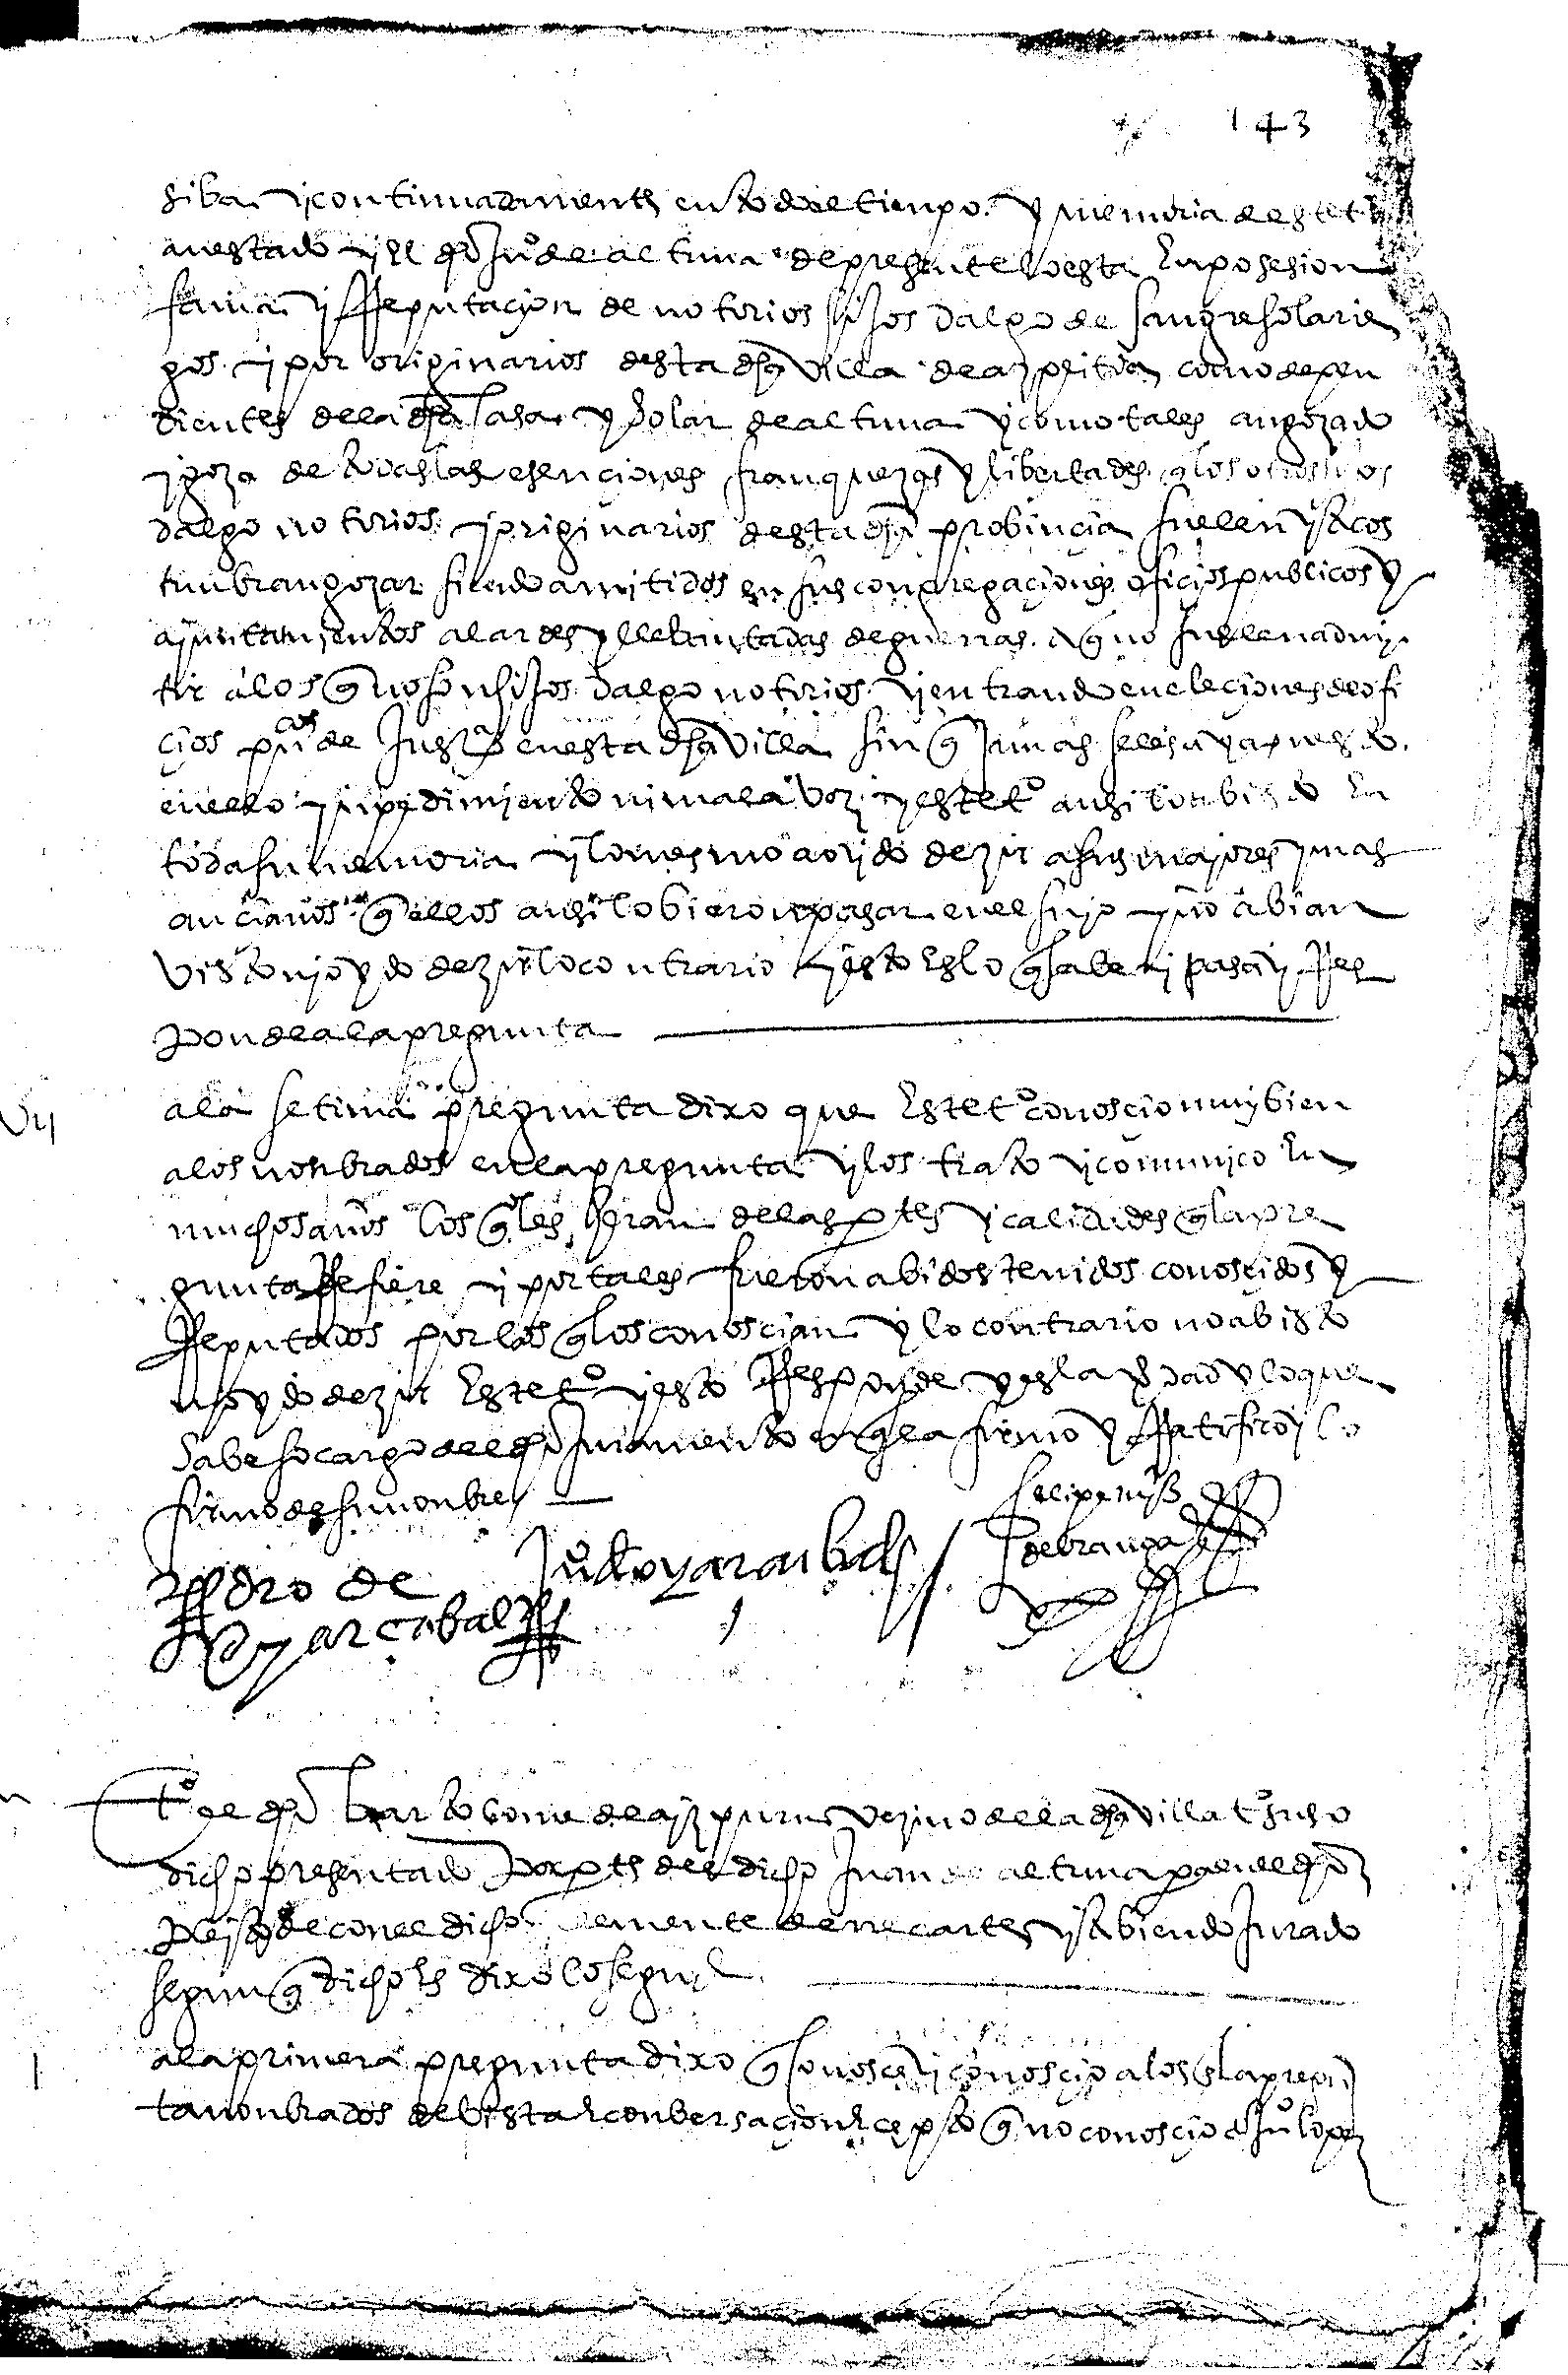 143
siba y continuadamente en todo el tiempo y memoria deste tº
an estado y el dho juº de altuna de presente lo esta en posesion
fama y rreputaçion de notorios hijos dalgo de sangre solarie
gos y por originarios desta dha villa de azpeitia como depen
dientes de la dha casa y solar de altuna y como tales an gozado
y goza de todas las esençiones franquezas y libertades q los otros hijos
dalgo notorios y originarios desta dha probinçia suelen y acos
tunbran gozar siendo amitidos en sus congregaçiones ofiçios publicos y
ajuntamientos alardes y llebantadas de guerras a q no suelen admi
tir a los q no son hijos dalgo notorios y entrando en eleçiones de ofi
çios pucos de justª en esta dha villa sin q jamas se les aya puesto
en ello ynpedimiento ni mala voz y este tº ansi lo a bisto en
toda su memoria y lo mesmo a oydo dezir a sus mayores y mas
ançianos q ellos ansi lo bieron pasar en el suyo y no abian
visto ni oydo dezir lo contrario y esto es lo q sabe y pasa y rres
ponde a la pregunta
vij
a la setima pregunta dixo que este tº conosçio muy bien
a los nonbrados en la pregunta y los trato y comunico en
muchos años los qles heran de las ptes y calidades q la pre
gunta rrefiere y por tales fueron abidos tenidos conosçidos y
rreputados por los q los conosçian y lo contrario no a bisto
ni oydo dezir este tº y esto rresponde y es la verdad y lo que
sabe so cargo del dho juramento en q se afirmo y rratifico y lo
firmo de su nonbre
pedro de
oyarçabal
felipe mis
de branga
tº el dho bartolome de aizpuru vezino de la dha villa tº suso
dicho presentado por pte del dicho juan de altuna pa en el dho
pleito de con el dicho clemente de rrecarte y abiendo jurado
segun q dicho es dixo lo seguiente
I
a la primera pregunta dixo q conosçe y conosçio a los en la pregun
ta nonbrados de bista e conbersaçion eçepto q no conosçio a juº lopez